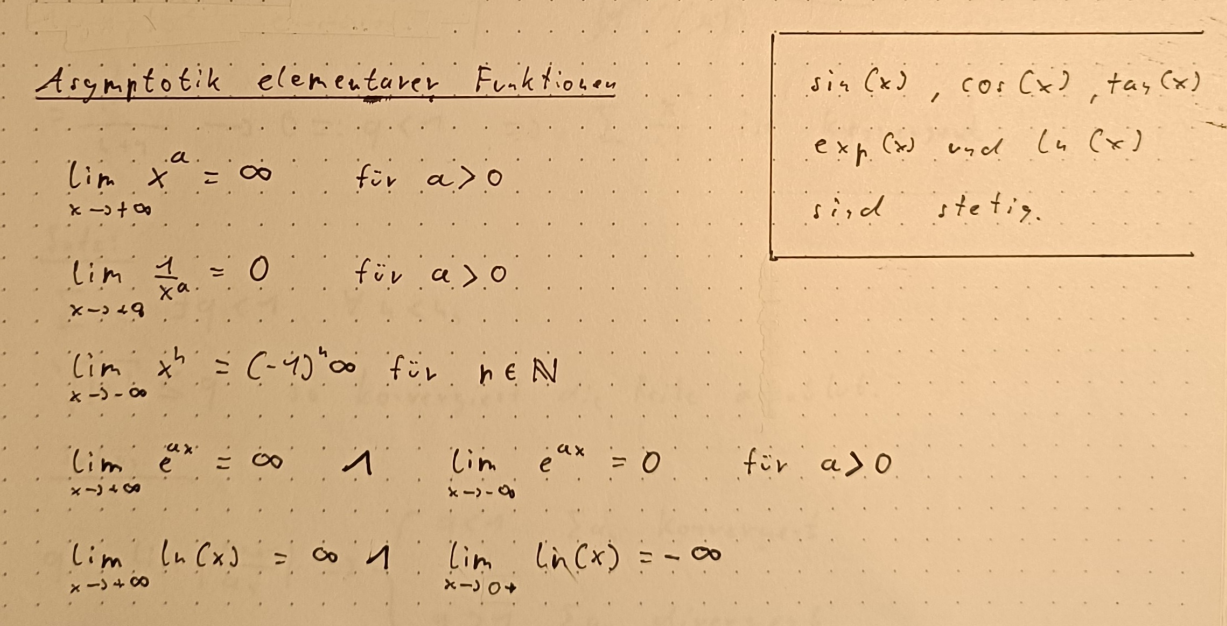 Asymptotik elementarer Funktionen
lim x^a = ∞ für a > 0
x→+∞
lim 1/x^a = 0 für a > 0
x→+∞
lim x^n = (-1)^n ∞ für n ∈ ℕ
x→-∞
lim e^ax = ∞ ∧ lim e^ax = 0 für a > 0
x→+∞ x→-∞
lim ln(x) = ∞ ∧ lim ln(x) = -∞
x→+∞ x→0+
sin(x), cos(x), tan(x)
exp(x) und ln(x)
sind stetig.